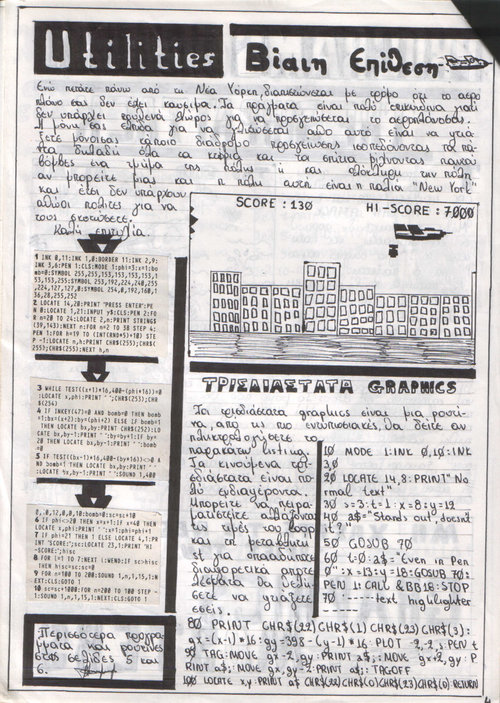 Utilities
Βίαιη Επίθεση
Ενώ πετάτε πάνω από τη Νέα Υόρκη, διαπιστώνεται με τρόμο ότι το αερο
πλάνο σας δεν έχει καύσιμα. Τα πράγματα είναι πολύ επικίνδυνα γιατί
δεν υπάρχει κανένας χώρος για να προσγειώσεται το αεροπλάνο σας.
Η μόνη σας ελπίδα για να γλυτώσεται από αυτό είναι να φτιά
ξετε μόνοι σας κάποιο διάδρομο προσγείωσης ισοπεδώνοντας τα πά
ντα δηλαδή όλα τα κτίρια και τα σπίτια ρίχνοντας πάνω
βόμβες ένα τμήμα της πόλης ή και ολόκληρη την πόλη
αν μπορείτε μιας και η πόλη αυτή είναι η παλιά "New York"
και έτσι δεν υπάρχουν
άλλοι πολίτες για να
τους σκοτώσετε.
Καλή επιτυχία.
SCORE : 130
HI-SCORE : 7000
1 INK 0,11:INK 1,0:BORDER 11:INK 2,9:
INK 3,6:PEN 1:CLS:MODE 1:phi=3:x=1:bo
mb=0:SYMBOL 255,255,153,153,153,153,1
53,153,255:SYMBOL 253,192,224,240,255
,224,127,127,0:SYMBOL 254,0,192,160,1
36,28,255,252
2 LOCATE 14,20:PRINT "PRESS ENTER":PE
N 0:LOCATE 1,21:INPUT y$:CLS:PEN 2:FO
R n=20 TO 24:LOCATE 2,n:PRINT STRING$
(39,143):NEXT n:FOR n=2 TO 38 STEP 4:
PEN 1:FOR h=19 TO (INT(RND*5)+10) STE
P -1:LOCATE n,h:PRINT CHR$(255);CHR$(
255);CHR$(255):NEXT h,n
3 WHILE TEST((x+1)*16,400-(phi*16))=0
:LOCATE x,phi:PRINT" ";CHR$(253);CHR
$(254)
4 IF INKEY(47)=0 AND bomb=0 THEN bomb
=1:bx=(x+2):by=(phi+2) ELSE IF bomb=1
THEN LOCATE bx,by:PRINT CHR$(252):LO
CATE bx,by-1:PRINT" ":by=by+1:IF by=
20 THEN LOCATE bx,by-1:PRINT" ":bomb
=0
5 IF TEST((bx-1)*16,400-(by*16))<>0 A
ND bomb=1 THEN LOCATE bx,by:PRINT" "
:LOCATE bx,by-1:PRINT" ":SOUND 1,400
0,0,12,0,0,10:bomb=0:sc=sc+10
6 IF phi<>20 THEN x=x+1:IF x=40 THEN
LOCATE x,phi:PRINT" ":x=1:phi=phi+1
7 IF phi=21 THEN 1 ELSE LOCATE 4,1:PR
INT"SCORE:";sc:LOCATE 23,1:PRINT"HI
-SCORE:";hisc
8 FOR t=1 TO 7:NEXT t:WEND:IF sc>hisc
THEN hisc=sc:sc=0
9 FOR n=100 TO 200:SOUND 1,n,1,15,1:N
EXT:CLS:GOTO 1
10 sc=sc+1000:FOR n=200 TO 100 STEP -
1:SOUND 1,n,1,15,1:NEXT:CLS:GOTO 1
ΤΡΙΣΔΙΑΣΤΑΤΑ GRAPHICS
Τα τρισδιάστατα graphics είναι μια ρουτί
να, από τις πιο εντυπωσιακές, θα δείτε αν
πληκτρολογήσετε το
παρακάτω listing.
Τα κινούμενα τρι
σδιάστατα είναι πο
λύ ενδιαφέροντα.
Μπορείτε να πειρα
ματιστείτε αλλάζοντας
τις τιμές του βρόχου
και τη μεταβλητή
st για οποιαδήποτε
διαφορετικά αποτε
λέσματα θα θελή
σετε να φτιάξετε
εσείς.
10 MODE 1:INK 0,10:INK
3,0
20 LOCATE 14,8:PRINT"No
rmal text"
30 s=3:t=1:x=8:y=12
40 a$="Stands out, doesn't
it?"
50 GOSUB 70
60 t=0:a$="Even in Pen
0":x=13:y=18:GOSUB 70:
PEN 1:CALL &BB18:STOP
70 '-----text highlighter
-----
80 PRINT CHR$(22)CHR$(1)CHR$(23)CHR$(3):
gx=(x-1)*16:gy=398-(y-1)*16:PLOT -2,-2,s:PEN t
90 TAG:MOVE gx-2,gy:PRINT a$;:MOVE gx+2,gy:P
RINT a$;:MOVE gx,gy-2:PRINT a$;:TAGOFF
100 LOCATE x,y:PRINT a$ CHR$(22)CHR$(0)CHR$(23)CHR$(0):RETURN
Περισσότερα προγρά
μματα και ρουτίνες
στις σελίδες 5 και
6.
4